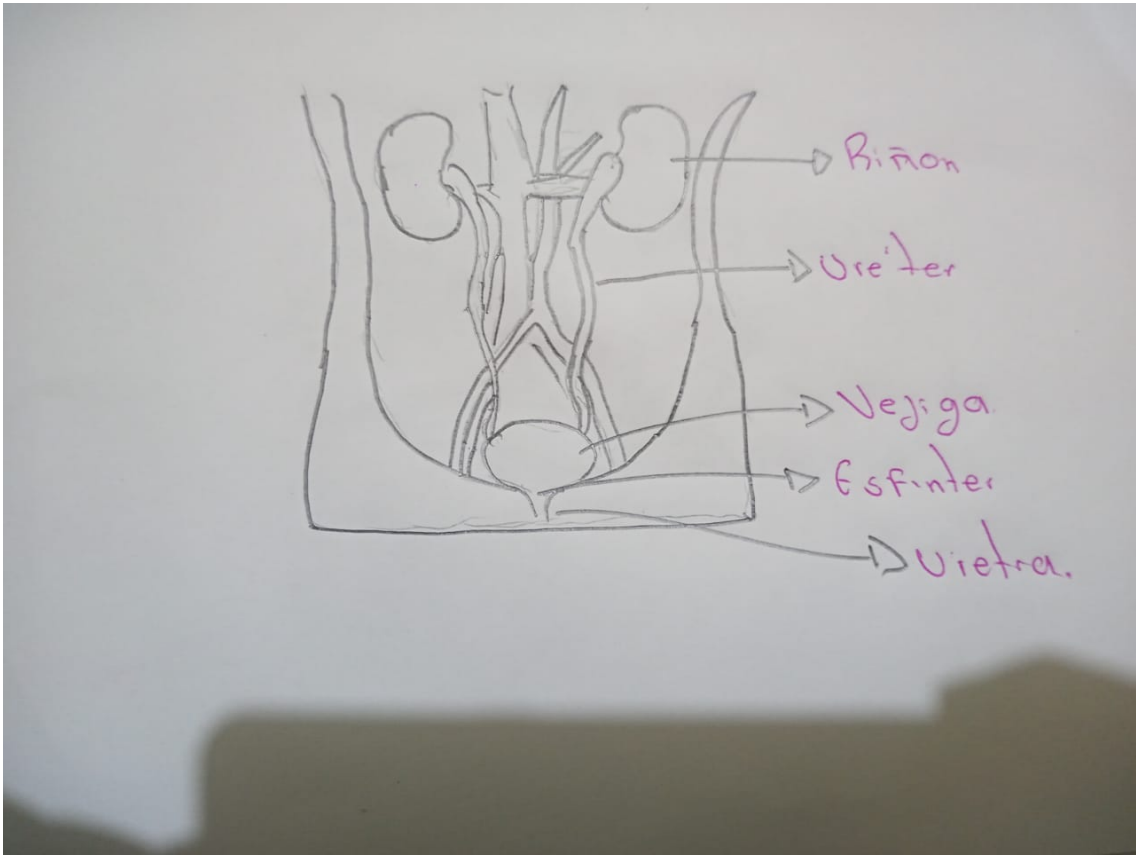 Riñon
Uréter
Vejiga
Esfinter
Uretra.